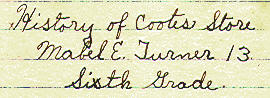 History of Cootes Store
Mabel E. Turner 13
Sixth Grade.